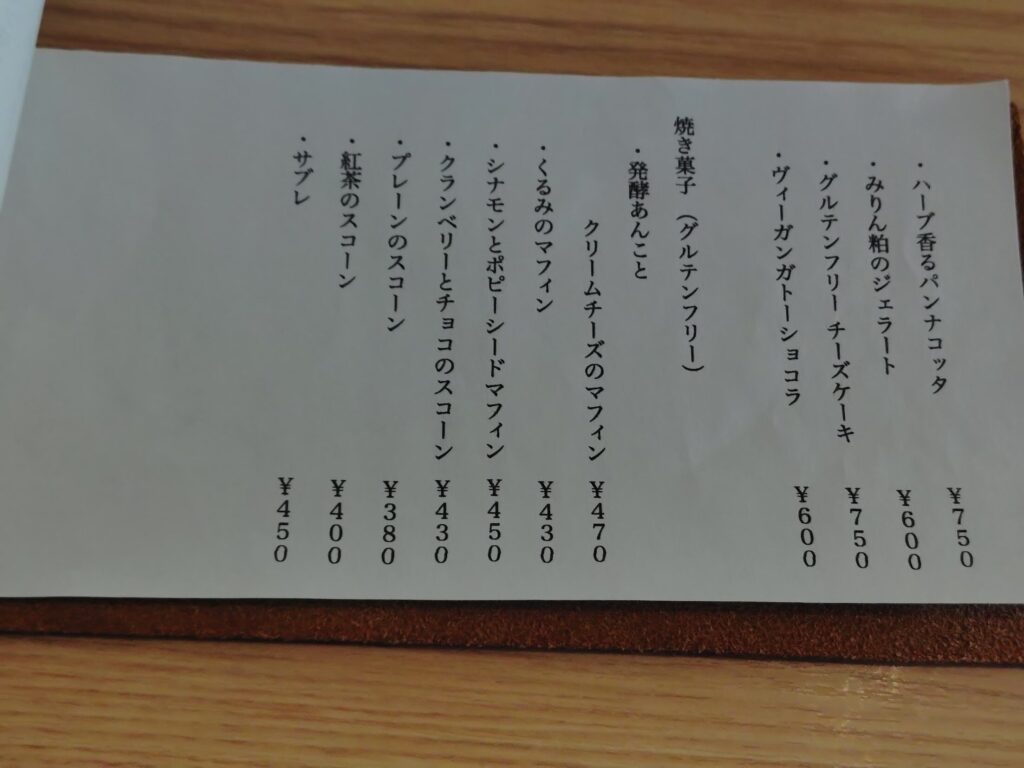 ・ハーブ香るパンナコッタ ¥750
・みりん粕のジェラート ¥600
・グルテンフリー チーズケーキ ¥750
・ヴィーガンガトーショコラ ¥600
焼き菓子 （グルテンフリー）
・発酵あんこと
クリームチーズのマフィン ¥470
・くるみのマフィン ¥430
・シナモンとポピーシードマフィン ¥450
・クランベリーとチョコのスコーン ¥430
・プレーンのスコーン ¥380
・紅茶のスコーン ¥400
・サブレ ¥450